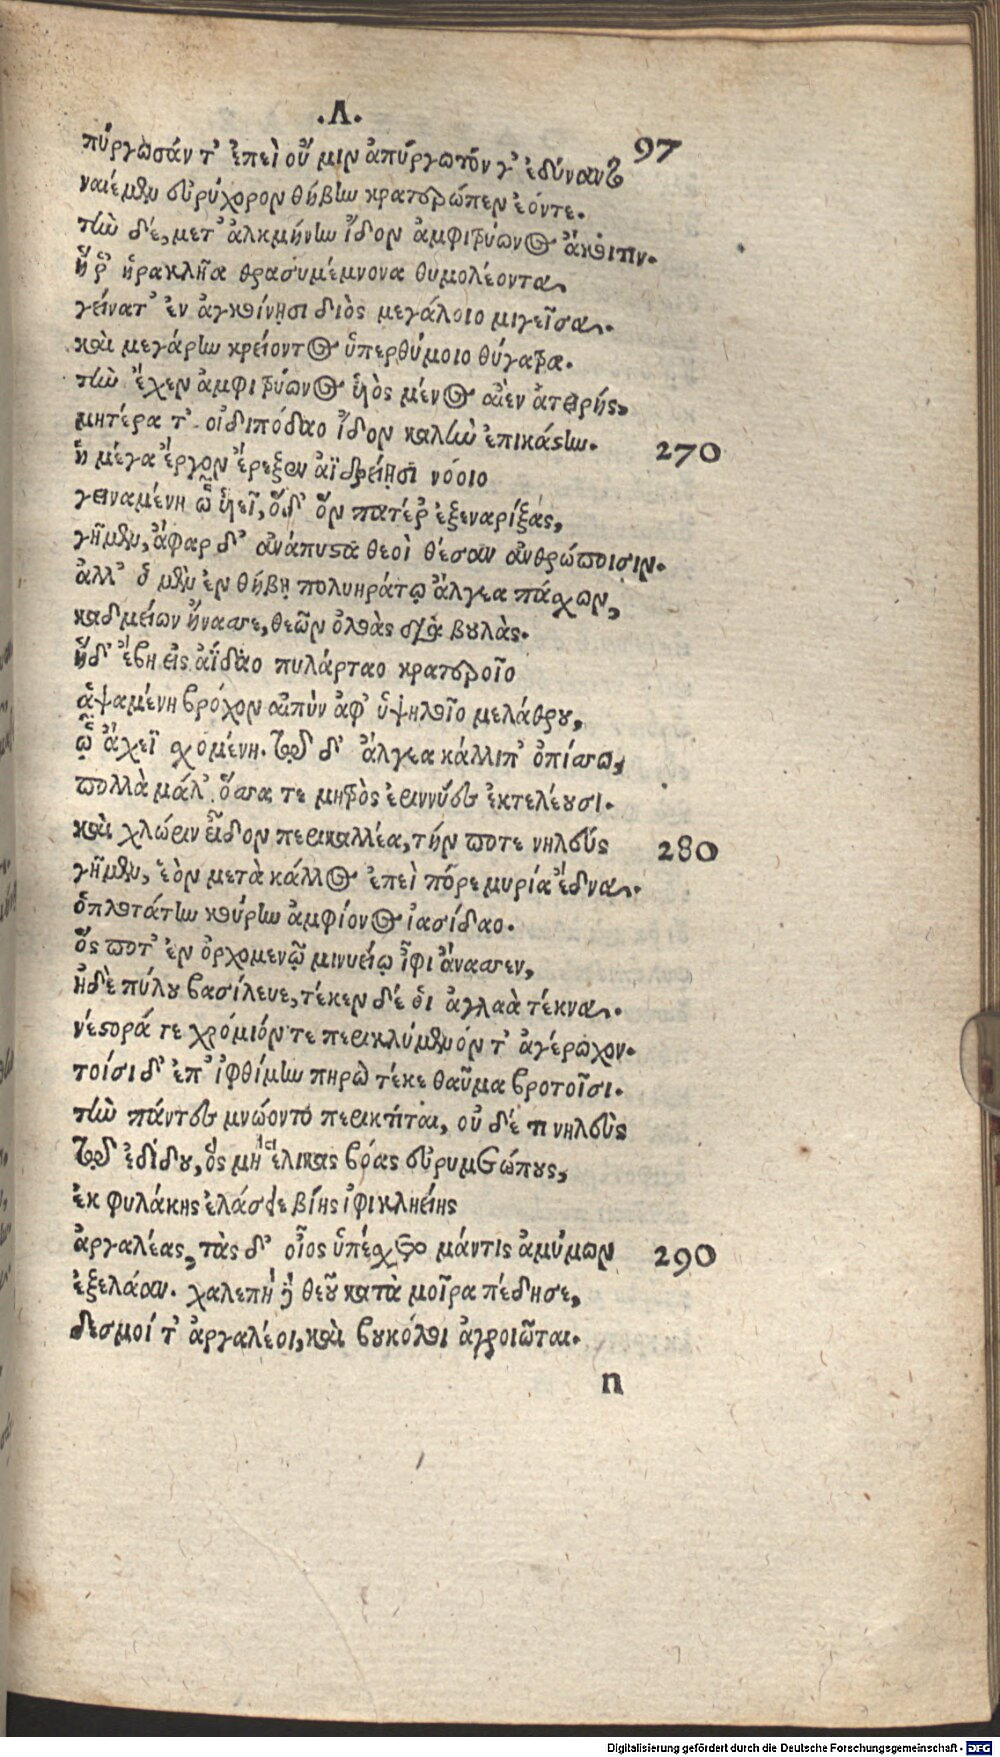 .Λ.
97
πύργωσάν τ' ἐπεὶ οὔ μιν ἀπύργωτόν γ' ἐδύναντο
ναιέμεν εὐρύχορον θήβην κρατερώπερ ἐόντε.
τὴν δέ, μετ' ἀλκμήνην ἴδον ἀμφιτρύωνος ἄκοιτιν.
ἥ ῥ' ἡρακλῆα θρασυμέμνονα θυμολέοντα,
γείνατ' ἐν ἀγκοίνῃσι διὸς μεγάλοιο μιγεῖσα.
καὶ μεγάρην κρείοντος ὑπερθύμοιο θύγατρα.
τὴν ἔχεν ἀμφιτρύωνος ὑὸς μένος αἰὲν ἀτειρής.
μητέρα τ' οἰδιπόδαο ἴδον καλὴν ἐπικάστην. 270
ἣ μέγα ἔργον ἔρεξεν ἀϊδρείῃσι νόοιο
γειναμένη ᾧ ὑεῖ, ὅδ' ὃν πατέρ' ἐξεναρίξας,
γῆμεν, ἄφαρ δ' ἀνάπυστα θεοὶ θέσαν ἀνθρώποισιν.
ἀλλ' ὁ μὲν ἐν θήβῃ πολυηράτῳ ἄλγεα πάσχων,
καδμείων ἤνασσε, θεῶν ὀλοὰς διὰ βουλὰς.
ἥδ' ἔβη εἰς ἀΐδαο πυλάρταο κρατεροῖο
ἁψαμένη βρόχον αἰπὺν ἀφ' ὑψηλοῖο μελάθρου,
ᾧ ἄχεϊ σχομένη. τῷ δ' ἄλγεα κάλλιπ' ὀπίσσω,
πολλὰ μάλ', ὅσσα τε μητρὸς ἐριννύες ἐκτελέουσι.
καὶ χλώριν εἶδον περικαλλέα, τήν ποτε νηλεύς 280
γῆμεν, ἑὸν μετὰ κάλλος ἐπεὶ πόρε μυρία ἕδνα.
ὁπλοτάτην κούρην ἀμφίονος ἰασίδαο.
ὅς ποτ' ἐν ὀρχομενῷ μινυείῳ ἶφι ἄνασσεν,
ἠδὲ πύλου βασίλευε, τέκεν δέ οἱ ἀγλαὰ τέκνα.
νέστορά τε χρόμιόν τε περικλύμενόν τ' ἀγέρωχον.
τοίσι δ' ἐπ' ἰφθίμην πηρὼ τέκε θαῦμα βροτοῖσι.
τὴν πάντες μνώοντο περικτίται, οὐ δέ τι νηλεὺς
τῷ ἐδίδου, ὃς μὴ ἕλικας βόας εὐρυμετώπους,
ἐκ φυλάκης ἐλάσειε βίης ἰφικληείης
ἀργαλέας, τὰς δ' οἶος ὑπέσχετο μάντις ἀμύμων 290
ἐξελάαν. χαλεπὴ δὲ θεοῦ κατὰ μοῖρα πέδησε,
δεσμοί τ' ἀργαλέοι, καὶ βουκόλοι ἀγροιῶται.
n
Digitalisierung gefördert durch die Deutsche Forschungsgemeinschaft - DFG